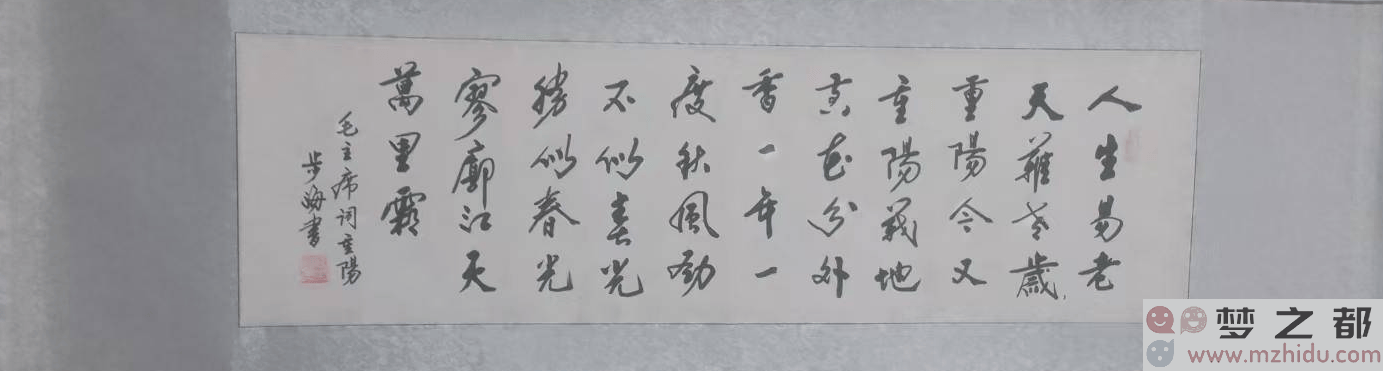 人生易老
天難老歲
重陽今又
重陽戰地
黃花分外
香一年一
度秋風勁
不似春光
勝似春光
寥廓江天
萬里霜
毛主席词重陽
步海書
梦之都
www.mzhidu.com